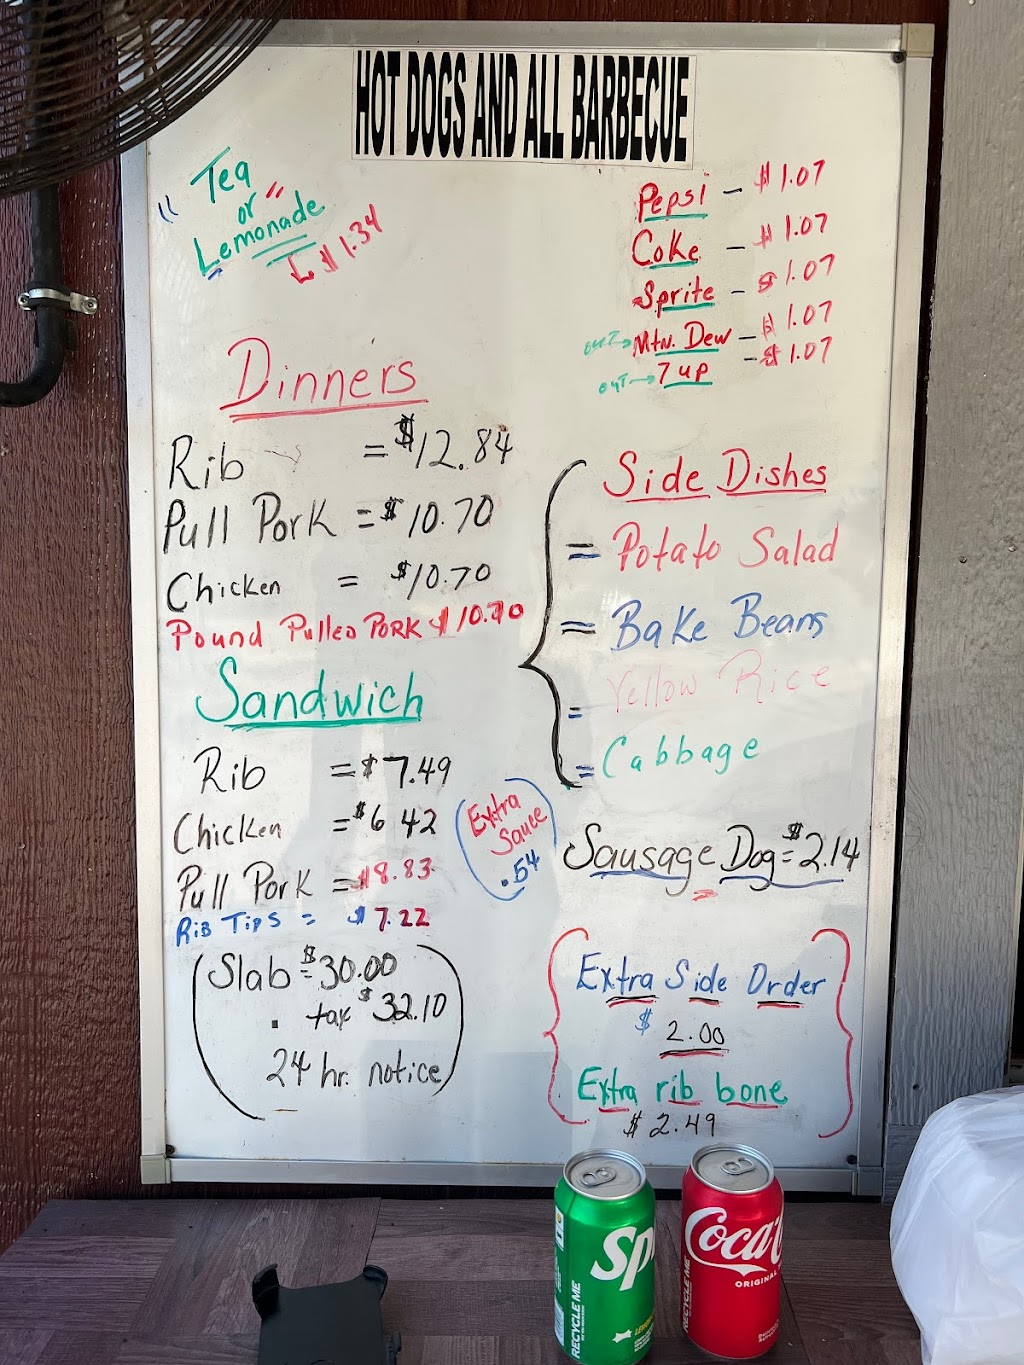 HOT DOGS AND ALL BARBECUE
"Tea
or"
Lemonade
$1.34
Pepsi - $1.07
Coke - $1.07
Sprite - $1.07
OUT → Mtn. Dew - $1.07
OUT → 7 up - $1.07
Dinners
Rib = $12.84
Pull Pork = $10.70
Chicken = $10.70
Pound Pulled Pork $10.70
Side Dishes
= Potato Salad
= Bake Beans
= Yellow Rice
= Cabbage
Sandwich
Rib = $7.49
Chicken = $6 42
Pull Pork = $8.83
Rib Tips = $7.22
Extra
Sauce
.54
Sausage Dog = $2.14
(Slab = $30.00
. tax $32.10
24 hr. notice)
{Extra Side Order
$2.00
Extra rib bone
$2.49}
Sp
RECYCLE ME
Coca
ORIGINAL
RECYCLE ME